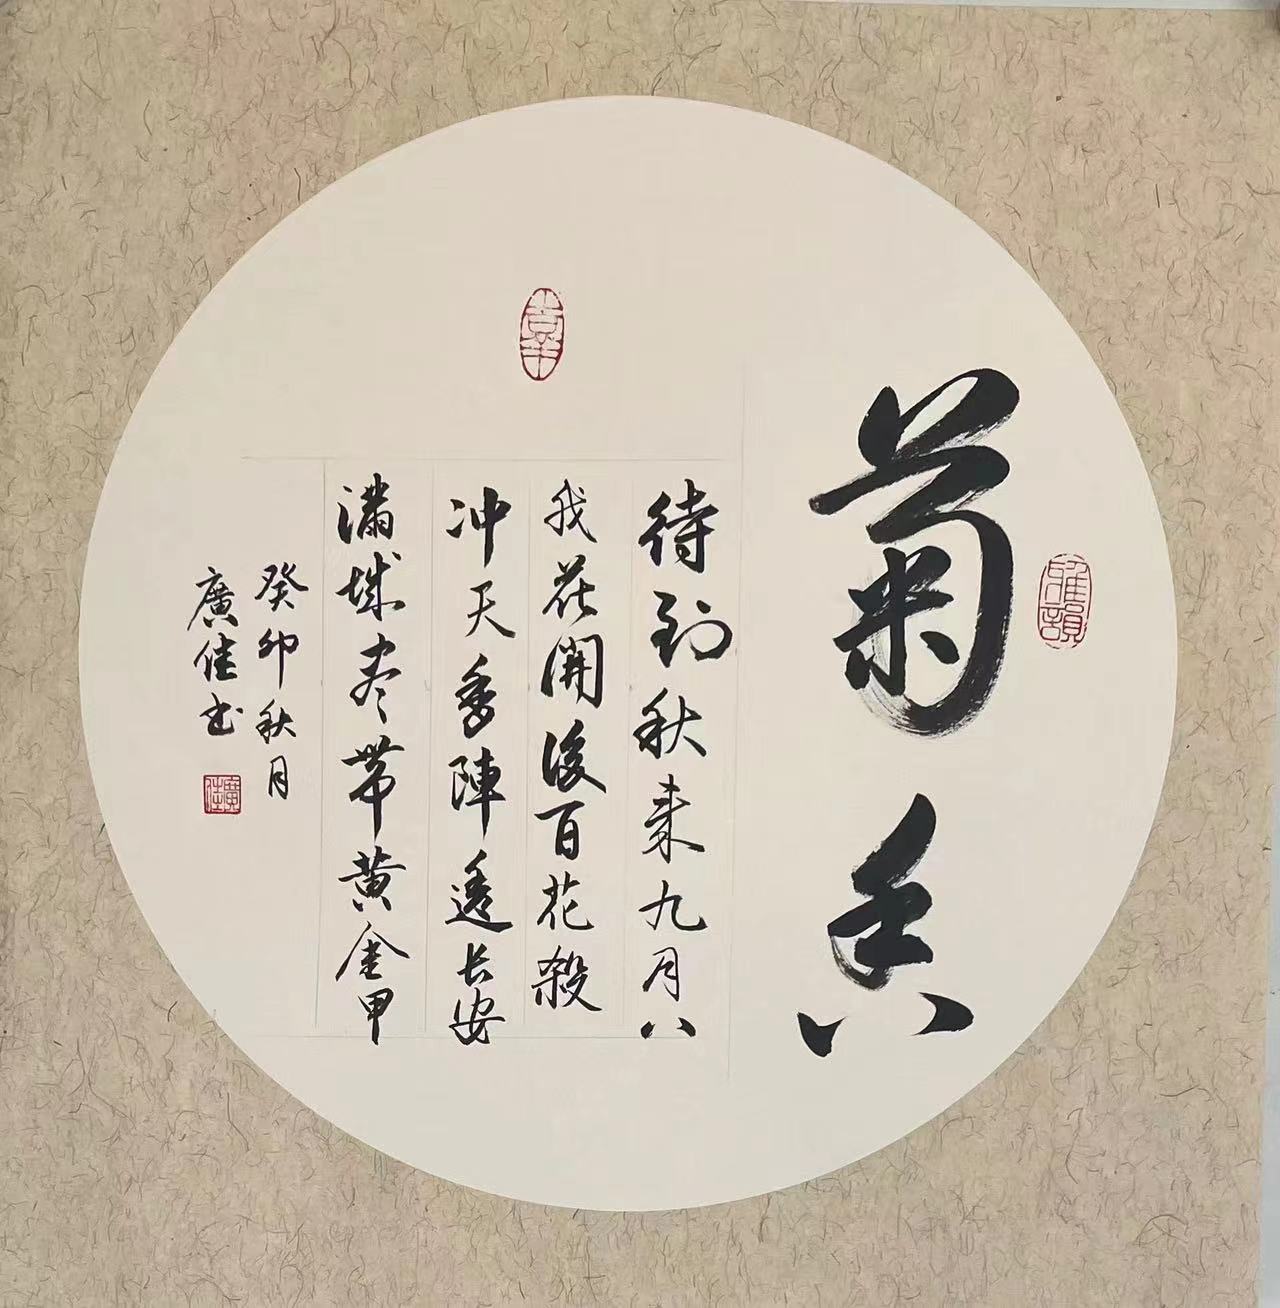 菊香
雅韻
待到秋来九月八
我花開後百花殺
冲天香陣透长安
滿城尽帶黄金甲
癸卯秋月
廣佳书
廣佳